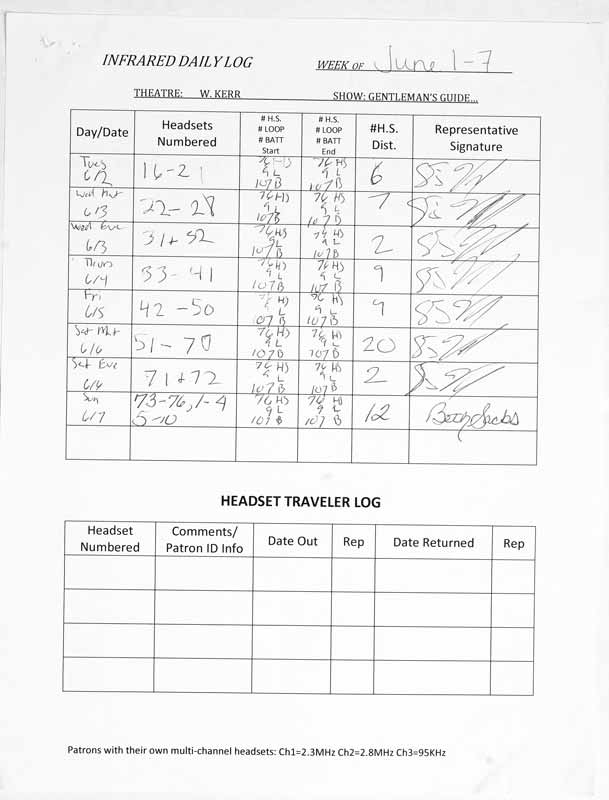 INFRARED DAILY LOG WEEK OF June 1-7
THEATRE: W. KERR SHOW: GENTLEMAN'S GUIDE...
Day/Date Headsets Numbered # H.S. # LOOP # BATT Start # H.S. # LOOP # BATT End #H.S. Dist. Representative Signature
Tues 6/2 16-21 76 HS 9 L 107 B 76 HS 9 L 107 B 6
Wed Mat 6/3 22-28 76 HS 9 L 107 B 76 HS 9 L 107 B 7
Wed Eve 6/3 31+32 76 HS 9 L 107 B 76 HS 9 L 107 B 2
Thurs 6/4 33-41 76 HS 9 L 107 B 76 HS 9 L 107 B 9
Fri 6/5 42-50 76 HS 9 L 107 B 76 HS 9 L 107 B 9
Sat Mat 6/6 51-70 76 HS 9 L 107 B 76 HS 9 L 107 B 20
Sat Eve 6/6 71+72 76 HS 9 L 107 B 76 HS 9 L 107 B 2
Sun 6/7 73-76, 1-4 5-10 76 HS 9 L 107 B 76 HS 9 L 107 B 12 Betsy Sachs
HEADSET TRAVELER LOG
Headset Numbered Comments/ Patron ID Info Date Out Rep Date Returned Rep
Patrons with their own multi-channel headsets: Ch1=2.3MHz Ch2=2.8MHz Ch3=95KHz